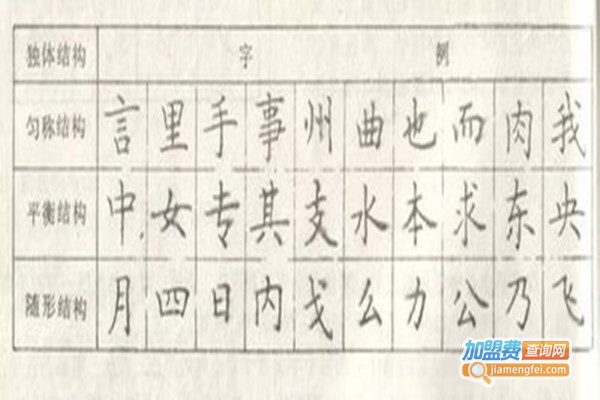 独体结构 字 例
匀称结构 言 里 手 事 州 曲 也 而 肉 我
平衡结构 中 女 专 其 支 水 本 求 东 央
随形结构 月 四 日 内 戈 么 力 公 乃 飞
加盟费查询网
jiamengfei.com